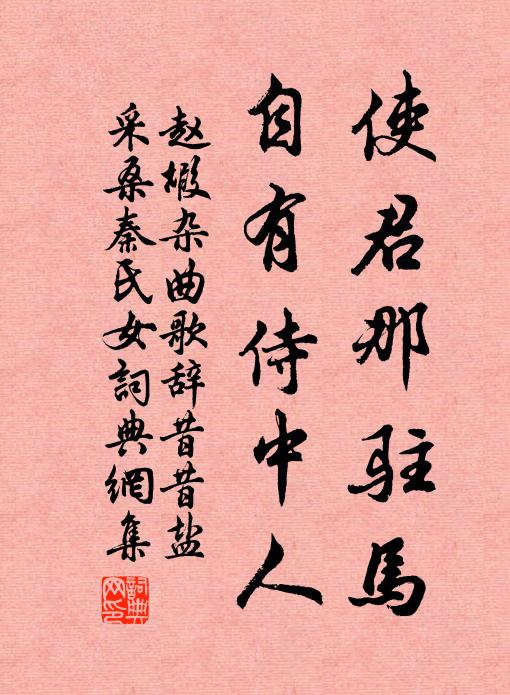 使君那驻馬
自有侍中人
赵嘏杂曲歌辞昔昔盐
采桑秦氏女詞典網集
詞典网印